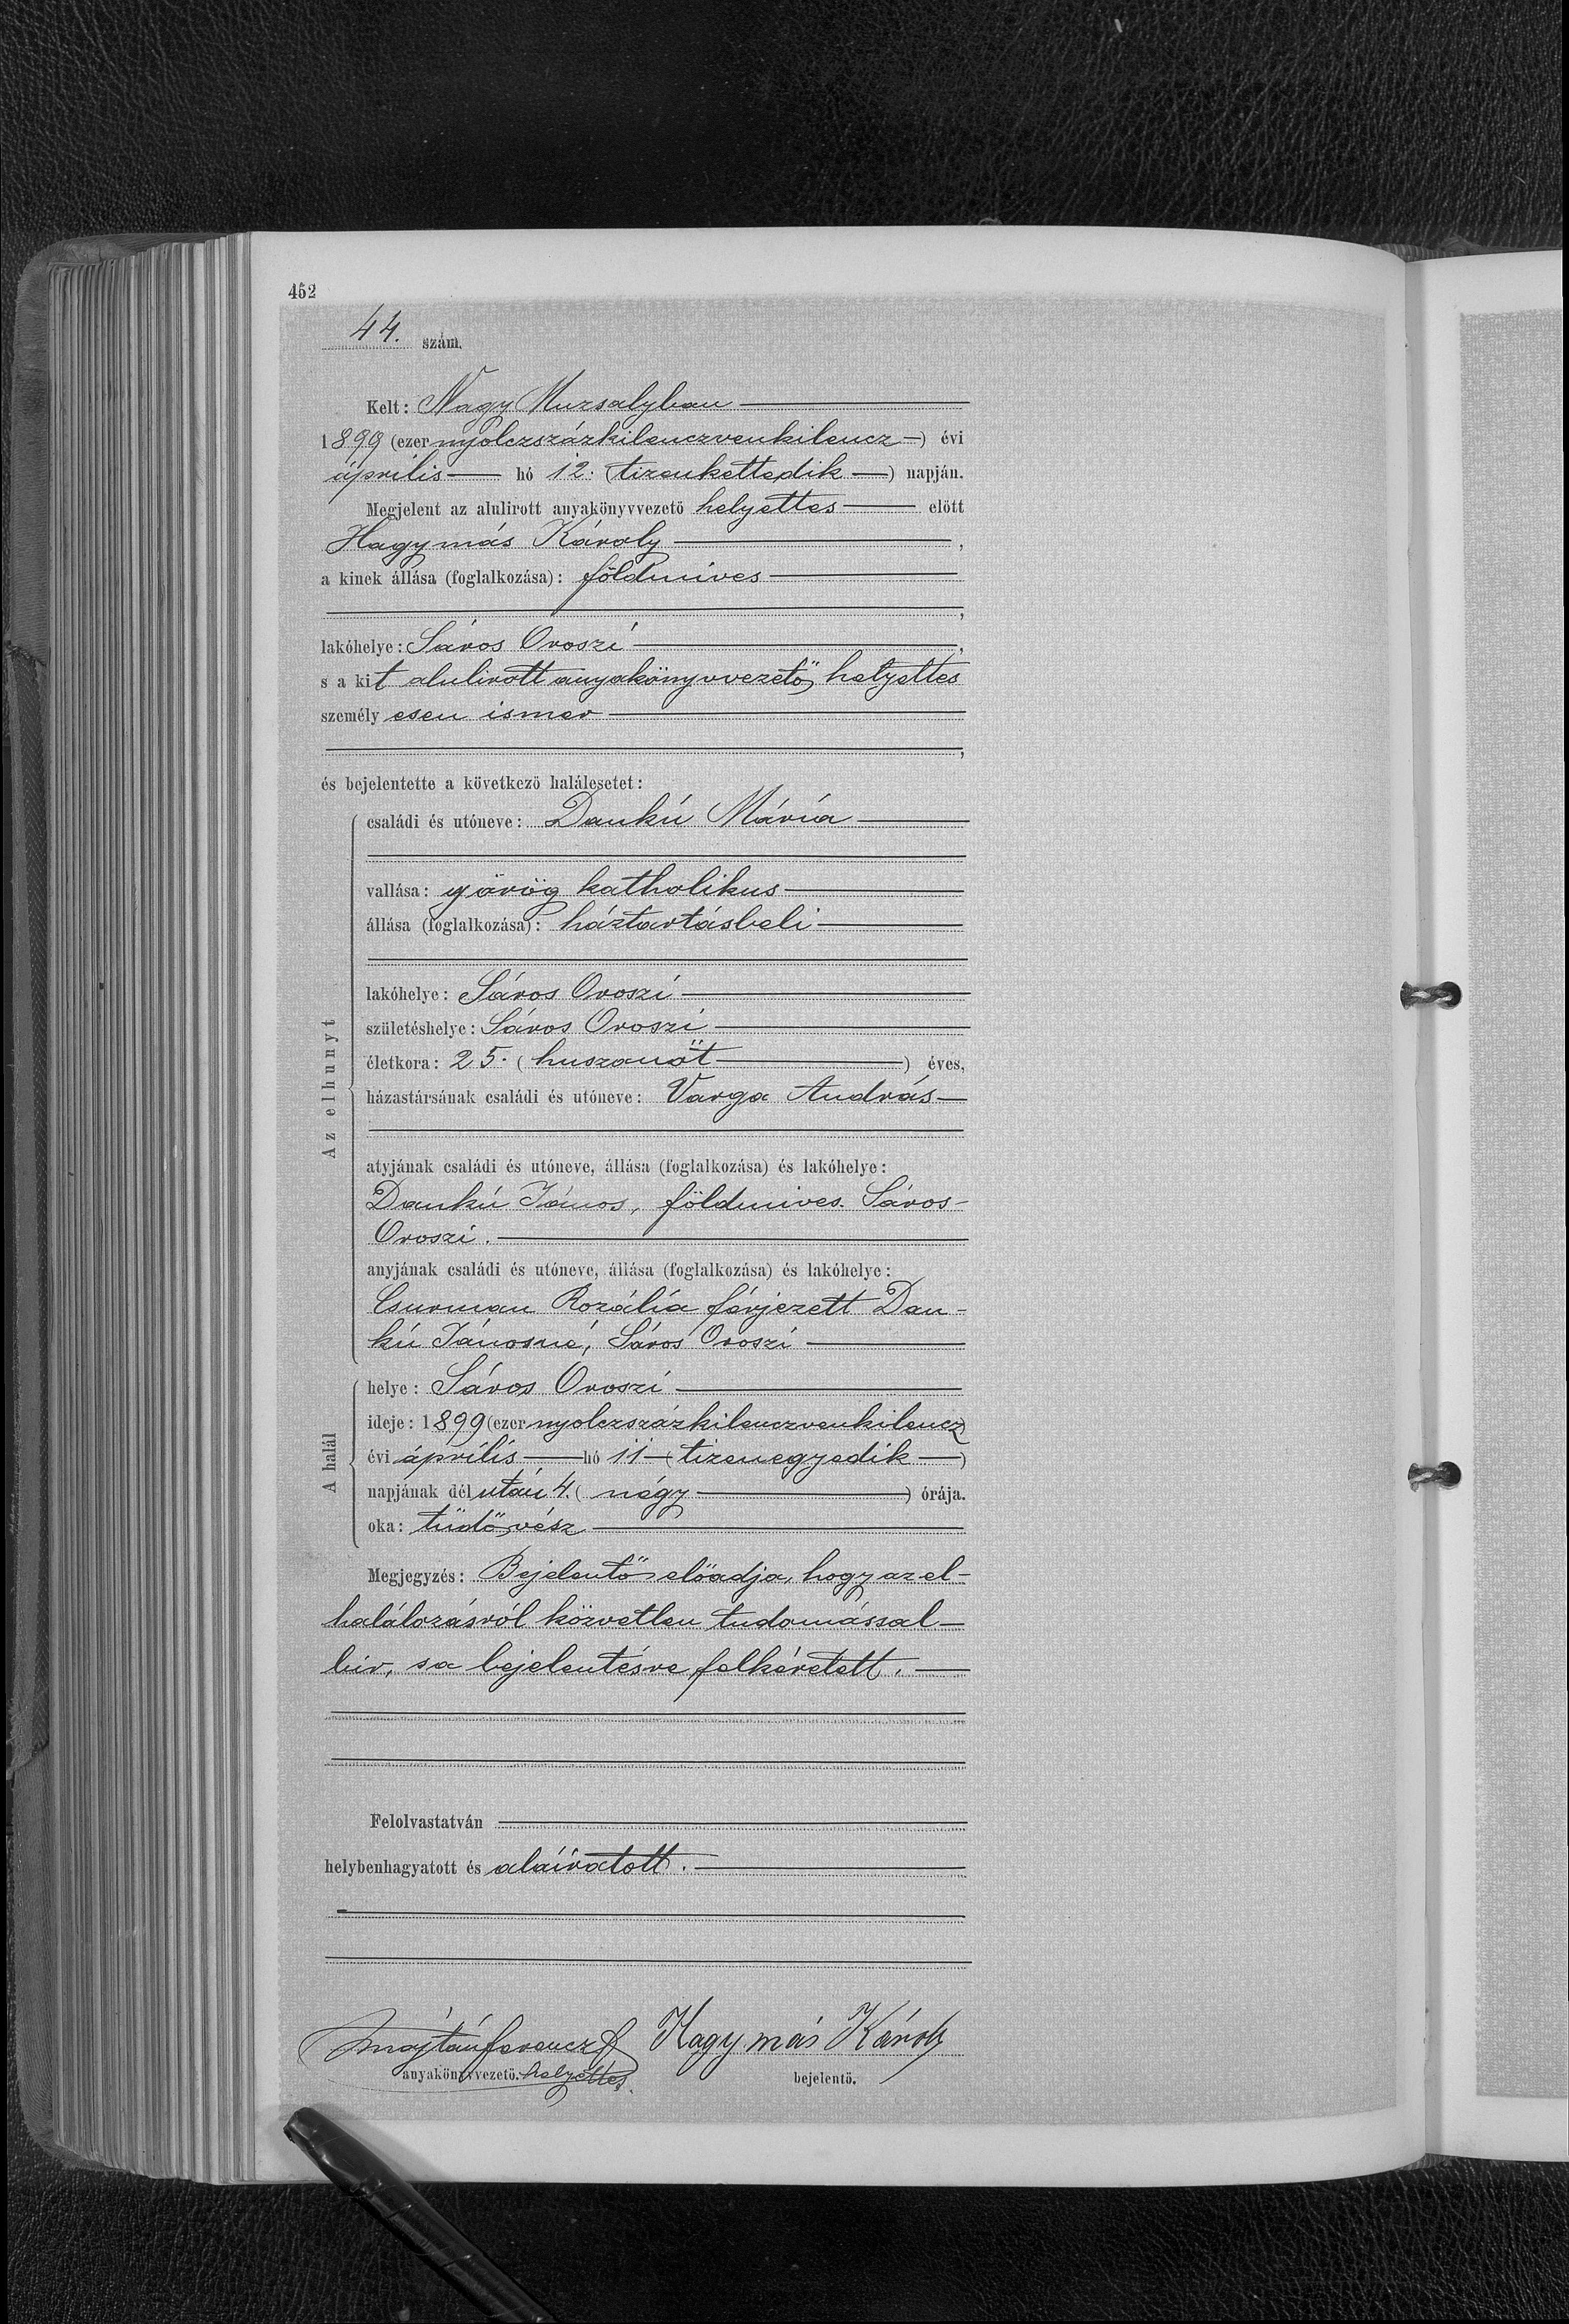 452
44. szám.
Kelt: Nagy Muzsalyban
1899 (ezer nyolczszázkilenczvenkilencz) évi
április hó 12. (tizenkettedik) napján.
Megjelent az alulirott anyakönyvvezető helyettes előtt
Hagymás Károly,
a kinek állása (foglalkozása): földmíves
,
lakóhelye: Sáros Oroszi,
s a kit alulirott anyakönyvvezető helyettes
személyesen ismer
,
és bejelentette a következő halálesetet:
Az elhunyt
családi és utóneve: Dankú Mária
vallása: görög katholikus
állása (foglalkozása): háztartásbeli
lakóhelye: Sáros Oroszi
születéshelye: Sáros Oroszi
életkora: 25. (huszonöt) éves,
házastársának családi és utóneve: Varga András
atyjának családi és utóneve, állása (foglalkozása) és lakóhelye:
Dankú János, földmíves. Sáros-
Oroszi.
anyjának családi és utóneve, állása (foglalkozása) és lakóhelye:
Csurman Rozália férjezett Dan-
kú Jánosné, Sáros Oroszi
A halál
helye: Sáros Oroszi
ideje: 1899 (ezer nyolczszázkilenczvenkilencz)
évi április hó 11 (tizenegyedik)
napjának délután 4. (négy) órája.
oka: tüdővész
Megjegyzés: Bejelentő előadja, hogy az el-
halálozásról közvetlen tudomással
bír, s a bejelentésre felkéretett.
Felolvastatván
helybenhagyatott és aláíratott.
Majtán Ferencz Hagymás Károly
anyakönyvvezető. helyettes. bejelentő.